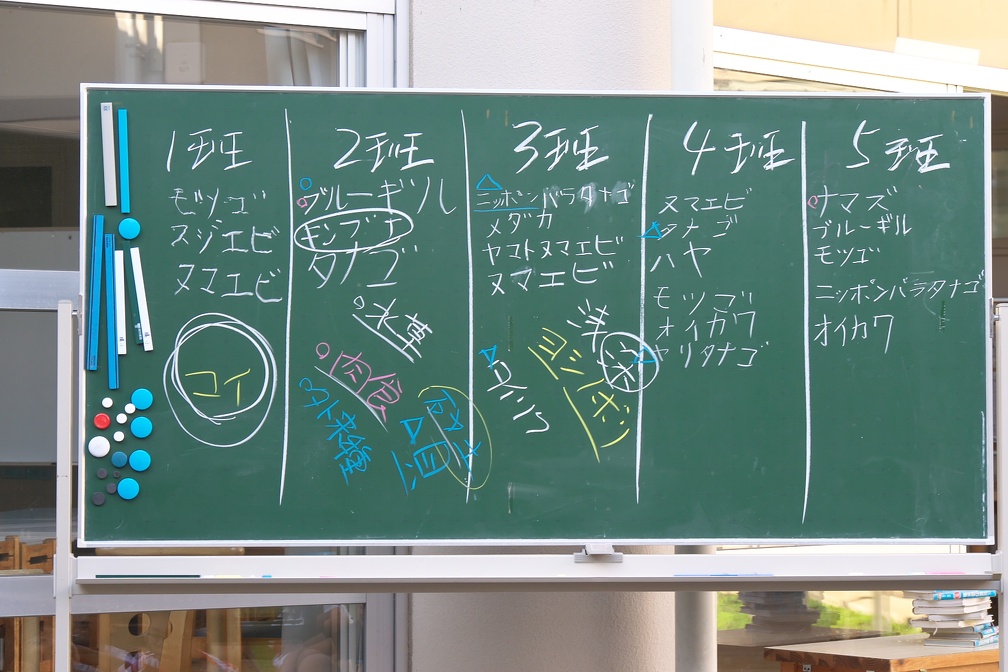 1班
モツゴ
スジエビ
ヌマエビ
コイ
2班
ブルーギル
ギンブナ
タナゴ
水草
肉食
外来種
3班
ニッポンバラタナゴ
メダカ
ヤマトヌマエビ
ヌマエビ
4班
ヌマエビ
タナゴ
ハヤ
モツゴ
オイカワ
ヤリタナゴ
5班
ナマズ
ブルーギル
モツゴ
ニッポンバラタナゴ
オイカワ